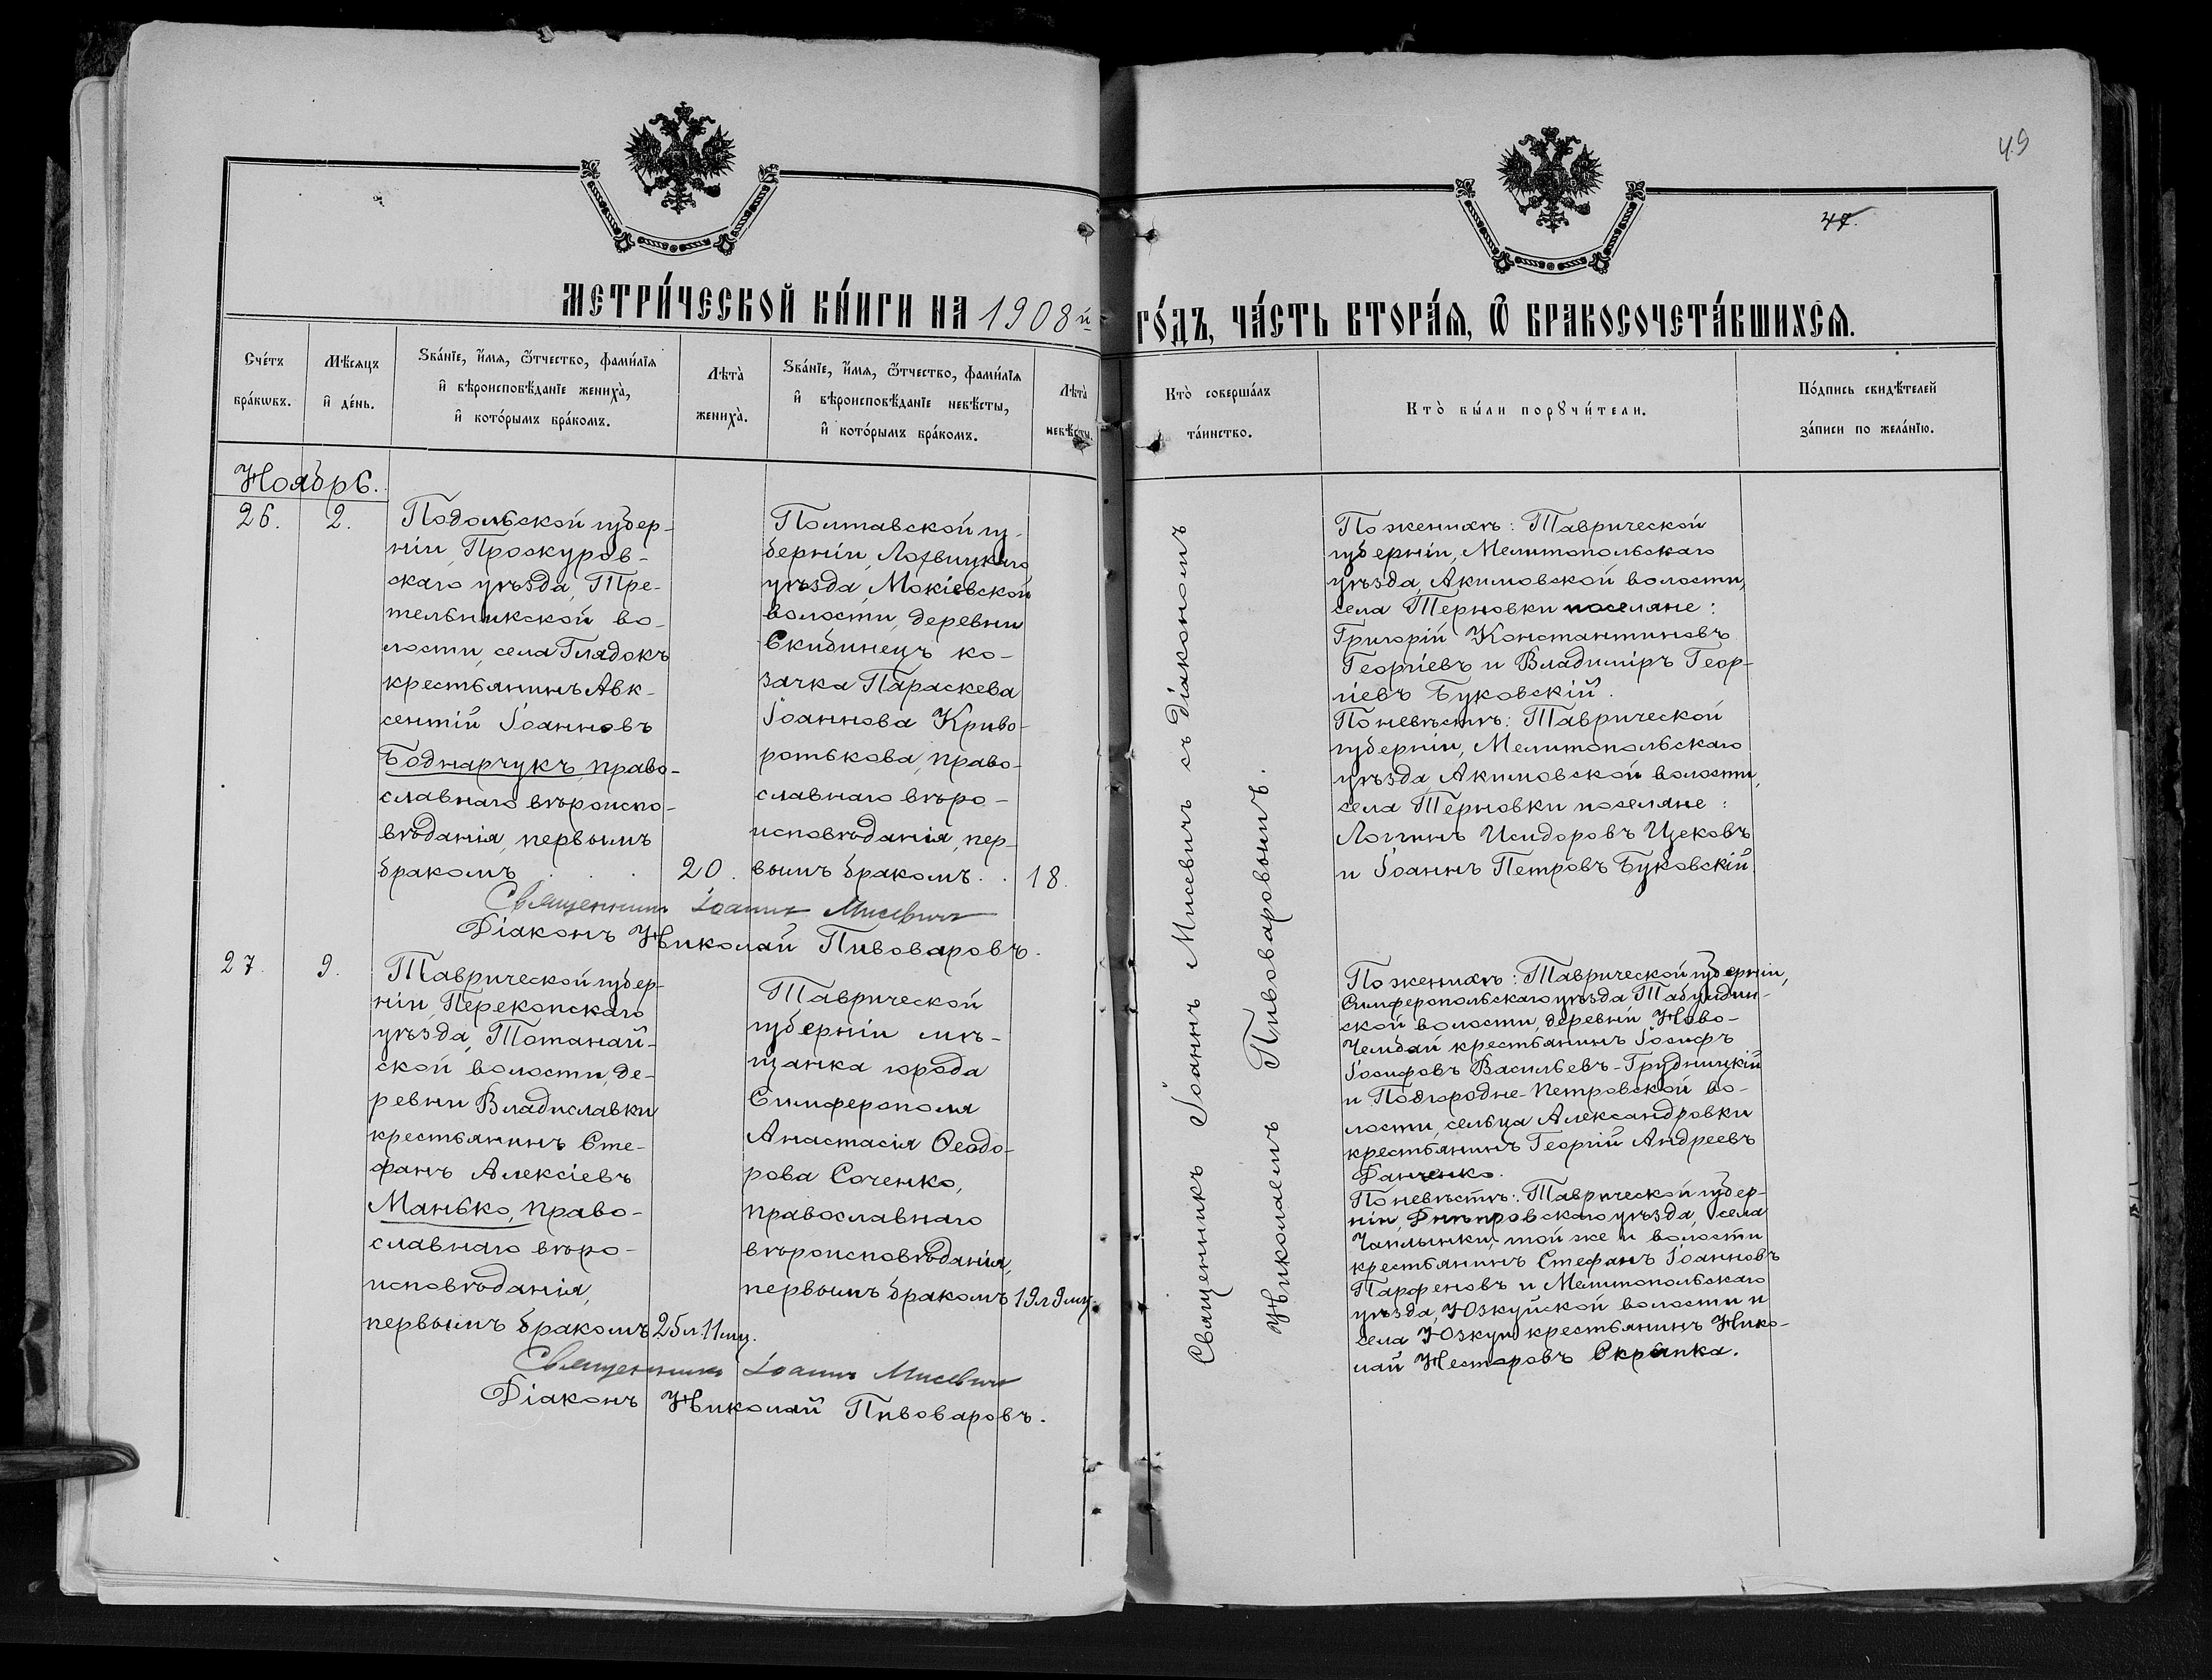 49
47.
МЕТРИ́ЧЕСКОЙ КН́ИГИ НА 1908й
ГО́ДЪ, ЧА́СТЬ ВТОРА́Я, Ѿ БРАКОСОЧЕТА́ВШИХСЯ.
Сче́тъ бра́кѡвъ.
Мѣ́сяцъ и҆ де́нь.
Ѕва́нїе, и҆́мя, ѻ҆́тчество, фами́лїя
и҆ вѣроисповѣ́данїе жениха̀,
и҆ кото́рымъ бра́комъ.
Лѣта̀
жениха̀.
Ѕва́нїе, и҆́мя, ѻ҆́тчество, фами́лїя
и҆ вѣроисповѣ́данїе невѣ́сты,
и҆ кото́рымъ бра́комъ.
Лѣта̀
невѣ́сты.
Кто̀ соверша́лъ
та́инство.
Кто̀ бы́ли порꙋчи́тели.
По́дпись свидѣ́телей
за́писи по жела́нїю.
Ноябрь.
26.
2.
Подольской губер-
ніи, Проскуров-
скаго уѣзда, Тре-
тельникской во-
лости, села Глядокъ
крестьянинъ Авк-
сентій Іоанновъ
Боднарчукъ, право-
славнаго вѣроиспо-
вѣданія, первымъ
бракомъ . . .
20.
Полтавской гу-
берніи, Лохвицкаго
уѣзда, Мокіевской
волости, деревни
Скибинецъ ко-
зачка Параскева
Іоаннова Криво-
ротькова, право-
славнаго вѣро-
исповѣданія, пер-
вымъ бракомъ. .
18.
Священникъ Іоаннъ Мисевичъ
Діаконъ Николай Пивоваровъ.
Священникъ Іоаннъ Мисевичъ съ діакономъ
Николаемъ Пивоваровымъ.
По женихѣ: Таврической
губерніи, Мелитопольскаго
уѣзда, Акимовской волости,
села Терновки поселяне:
Григорій Константиновъ
Георгіевъ и Владиміръ Геор-
гіевъ Буковскій.
По невѣстѣ: Таврической
губерніи, Мелитопольскаго
уѣзда, Акимовской волости,
села Терновки поселяне:
Логгинъ Исидоровъ Цековъ
и Іоаннъ Петровъ Буковскій.
27.
9.
Таврической губер-
ніи, Перекопскаго
уѣзда, Тотанай-
ской волости, де-
ревни Владиславки
крестьянинъ Сте-
фанъ Алексіевъ
Манько, право-
славнаго вѣро-
исповѣданія,
первымъ бракомъ
25л.11мц.
Таврической
губерніи мѣ-
щанка города
Симферополя
Анастасія Ѳеодо-
рова Соченко,
православнаго
вѣроисповѣданія,
первымъ бракомъ
19л9мц.
Священникъ Іоаннъ Мисевичъ
Діаконъ Николай Пивоваровъ.
По женихѣ: Таврической губерніи,
Симферопольскаго уѣзда Табулдин-
ской волости, деревни Ново-
Чембай крестьянинъ Іосифъ
Іосифовъ Васильевъ-Грудницкій
и Подгородне-Петровской во-
лости, сельца Александровки
крестьянинъ Георгій Андреевъ
Данченко.
По невѣстѣ: Таврической губер-
ніи, Днѣпровскаго уѣзда, села
Чаплынки, той же и волости
крестьянинъ Стефанъ Іоанновъ
Парфеновъ и Мелитопольскаго
уѣзда, Юзкуйской волости и
села Юзкуи крестьянинъ Нико-
лай Несторовъ Скрипка.